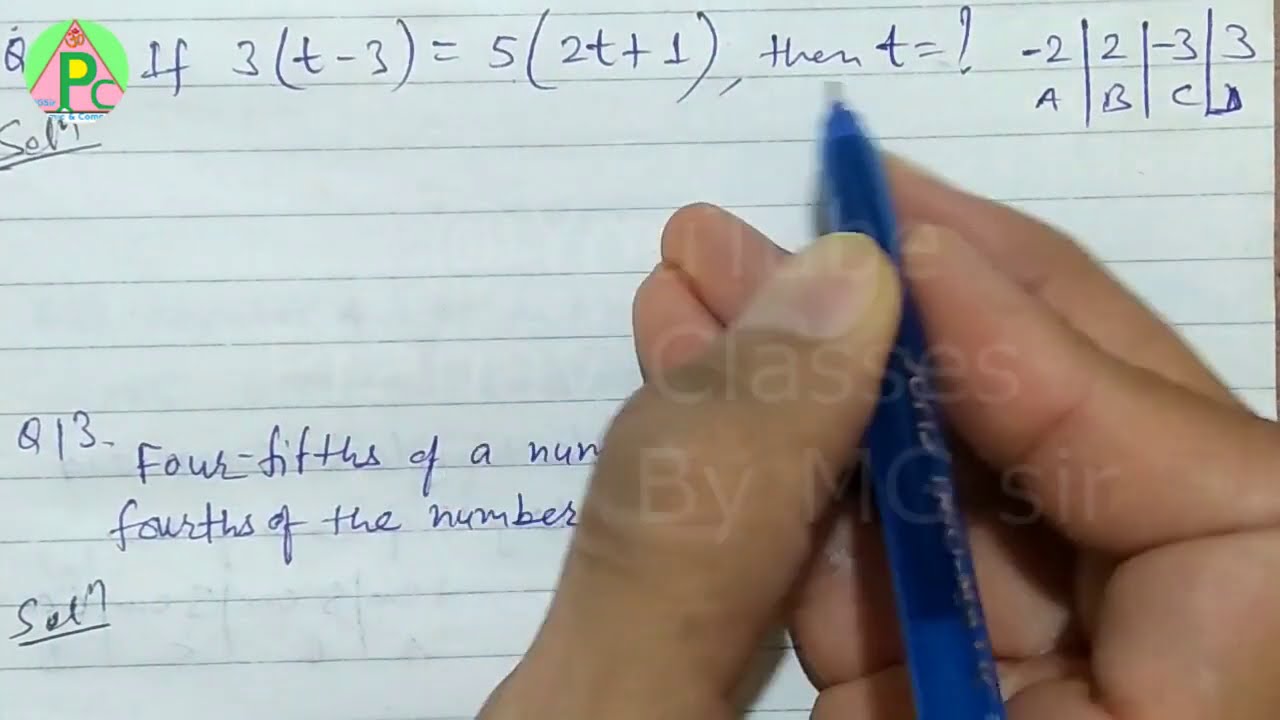 Q If 3(t-3) = 5(2t+1), then t=? -2 | 2 | -3 | 3
A | B | C | D
Solⁿ
PC
Classes
By MG sir
Q13. Four-fifths of a
fourths of the number
Solⁿ